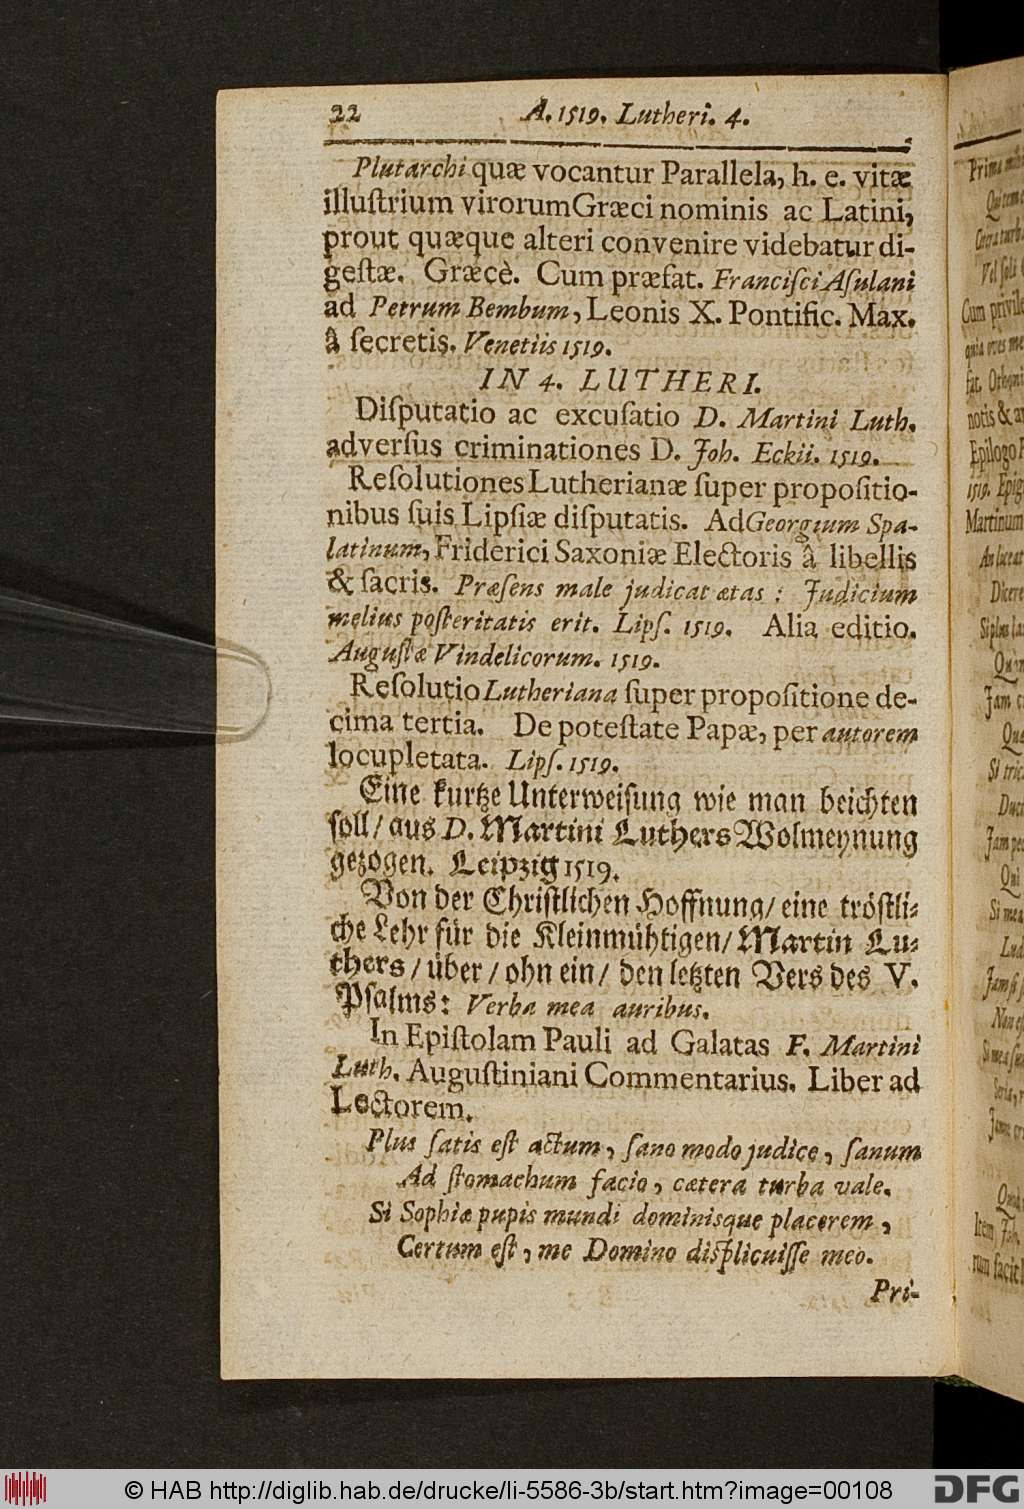 22 A. 1519. Lutheri. 4.
Plutarchi quæ vocantur Parallela, h. e. vitæ
illuſtrium virorum Græci nominis ac Latini,
prout quæque alteri convenire videbatur di-
geſtæ. Græcè. Cum præfat. Franciſci Aſulani
ad Petrum Bembum, Leonis X. Pontific. Max.
â ſecretis. Venetiis 1519.
IN 4. LUTHERI.
Diſputatio ac excuſatio D. Martini Luth.
adverſus criminationes D. Joh. Eckii. 1519.
Reſolutiones Lutherianæ ſuper propoſitio-
nibus ſuis Lipſiæ diſputatis. Ad Georgium Spa-
latinum, Friderici Saxoniæ Electoris â libellis
& ſacris. Præſens male judicat ætas: Judicium
melius poſteritatis erit. Lipſ. 1519. Alia editio.
Auguſtæ Vindelicorum. 1519.
Reſolutio Lutheriana ſuper propoſitione de-
cima tertia. De poteſtate Papæ, per autorem
locupletata. Lipſ. 1519.
Eine kurtze Unterweiſung wie man beichten
ſoll/ aus D. Martini Luthers Wolmeynung
gezogen. Leipzig 1519.
Von der Chriſtlichen Hoffnung/ eine tröſtli-
che Lehr für die Kleinmühtigen/ Martin Lu-
thers/ über/ ohn ein/ den letzten Vers des V.
Pſalms: Verba mea auribus.
In Epiſtolam Pauli ad Galatas F. Martini
Luth. Auguſtiniani Commentarius. Liber ad
Lectorem.
Plus ſatis eſt actum, ſano modo judice, ſanum
Ad ſtomachum facio, cætera turba vale.
Si Sophiæ pupis mundi dominisque placerem,
Certum eſt, me Domino diſplicuiſſe meo.
Pri-
Cum
notis & a
Epilogo
1519. Epig
Martinum
Dicere
Jam
Si tric
Qui
Si mea
Item Joh.
rum facit
© HAB http://diglib.hab.de/drucke/li-5586-3b/start.htm?image=00108
DFG